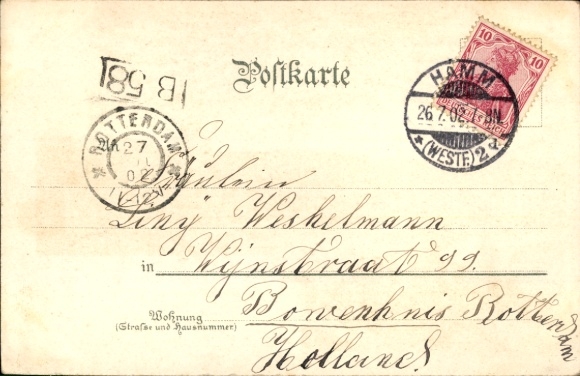 Postkarte
B 58
10 10
HAMM
26.7.02.1-8N
* (WESTF.) 2 d
ROTTERDAM
27
02
Fräulein
Liny Weshelmann
in Wijnstraat 99.
Wohnung
(Straße und Hausnummer)
Bowenhuis Rotterdam
Holland.